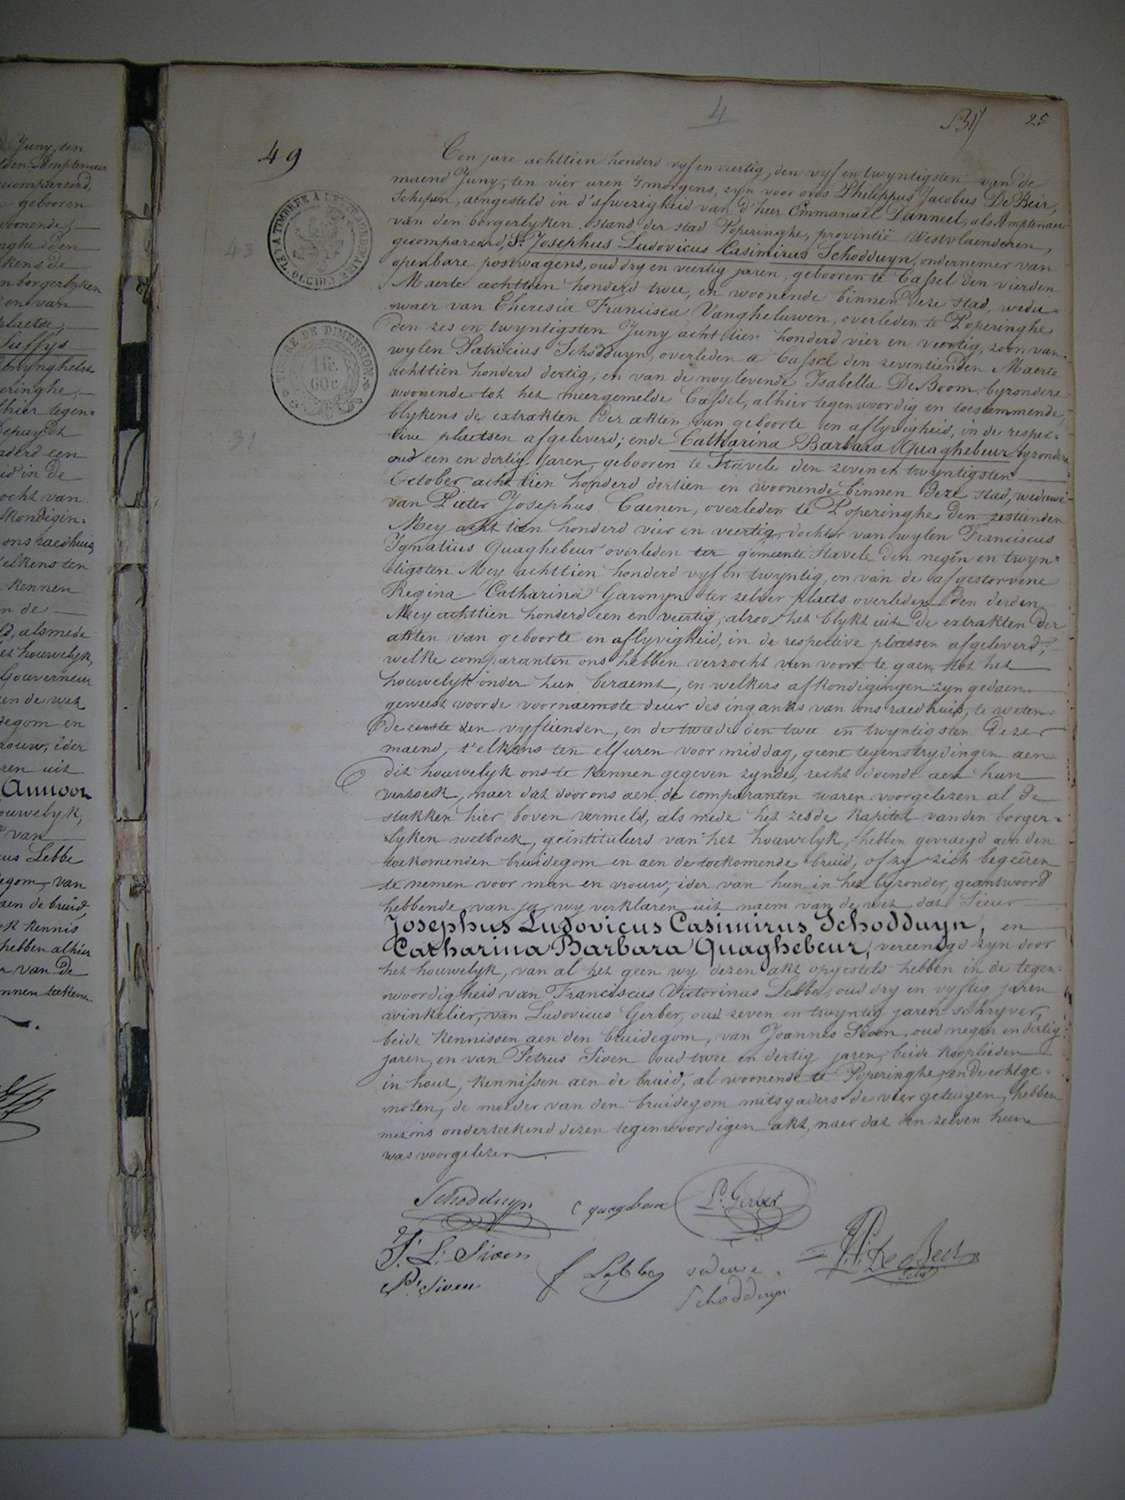 4
25
49
Juny, ten
gebooren
woonende;
Annoot
cus Lebbe
aen de bruid,
hebben alhier
r van de
43
31
TIMBRE DE DIMENSION
Den jare achttien honderd vyf en veertig, den vyf en twyntigsten van de
maend Juny, ten vier uren 's morgens, zyn voor ons Philippus Jacobus De Beir,
Schepen, aengesteld in d'afwezigheid van d'heer Emmanuel Danneel, als Amptenaer
van den borgerlyken stand der stad Poperinghe, provintie Westvlaenderen,
gecompareerd, Sr Josephus Ludovicus Casimirus Schodduyn, ondernemer van
openbare postwagens, oud dry en veertig jaren, gebooren te Cassel den vierden
Maerte achttien honderd twee, en woonende binnen deze stad, wedu-
waer van Theresia Francisca Vangheluwen, overleden te Poperinghe
den zes en twyntigsten Juny achttien honderd vier en veertig, zoon van
wylen Patricius Schodduyn, overleden a Cassel den zeventienden Maerte
achttien honderd dertig, en van de noglevende Isabella De Boom byzondere
woonende tot het meergemelde Cassel, alhier tegenwoordig en toestemmende,
blykens de extrakten der akten van geboorte en aflyvigheid, in de respec-
tive plaetsen afgeleverd; ende Catharina Barbara Quaghebeur byzondere
oud een en dertig jaren, gebooren te Stavele den zeven en twyntigsten
October achttien honderd dertien en woonende binnen deze stad, weduwe
van Pieter Josephus Caenen, overleden te Poperinghe den zestienden
Mey achttien honderd vier en veertig, dochter van wylen Franciscus
Ignatius Quaghebeur overleden ter gemeente Stavele den negen en twyn-
tigsten Mey achttien honderd vyf en twyntig, en van de afgestorvene
Regina Catharina Garonyn ter zelver plaets overleden den derden
Mey achttien honderd een en veertig, alzoo het blykt uit de extrakten der
akten van geboorte en aflyvigheid, in de respective plaetsen afgeleverd;
welke comparanten ons hebben verzocht van voort te gaen tot het
houwelyk onder hun beraemt, en welkers afkondigingen zyn gedaen
geweest voor de voornaemste deur des ingangs van ons raedhuis, te weten
De eerste den vyftienden, en de tweede den twee en twyntigsten dezer
maend, t'elkens ten elf uren voor middag, geene tegenstrydingen aen
dit houwelyk ons te kennen gegeven zynde, recht doende aen hun
verzoek, naer dat door ons aen de comparanten waren voorgelezen al de
stukken hier boven vermeld, als mede het zesde kapittel van den borger-
lyken wetboek, geïntituleerd van het houwelyk, hebben gevraegd aen den
toekomenden bruidegom en aen de toekomende bruid, of zy zich begeeren
te nemen voor man en vrouw, ider van hun in het byzonder, geantwoord
hebbende van ja, wy verklaren uit naem van de wet dat Sieur
Josephus Ludovicus Casimirus Schodduyn, en
Catharina Barbara Quaghebeur, vereenigd zyn door
het houwelyk, van al het geen wy dezen akt opgesteld hebben in de tegen-
woordigheid van Franciscus Victorinus Lebbe, oud dry en vyftig jaren
winkelier, van Ludovicus Gerber, oud zeven en twyntig jaren schryver,
beide kennissen aen den bruidegom, van Joannes Sioen, oud negen en dertig
jaren, en van Petrus Sioen oud twee en dertig jaren, beide kooplieden
in hout, kennissen aen de bruid, al woonende te Poperinghe, ende echtge-
noten, de moeder van den bruidegom mitsgaders de vier getuigen, hebben
met ons onderteekend dezen tegenwoordigen akt, naer dat den zelven hun
was voorgelezen
Schodduyn
L. Gerber
J. L. Sioen
P. Sioen
f Lebbe
weduwe
Schodduyn